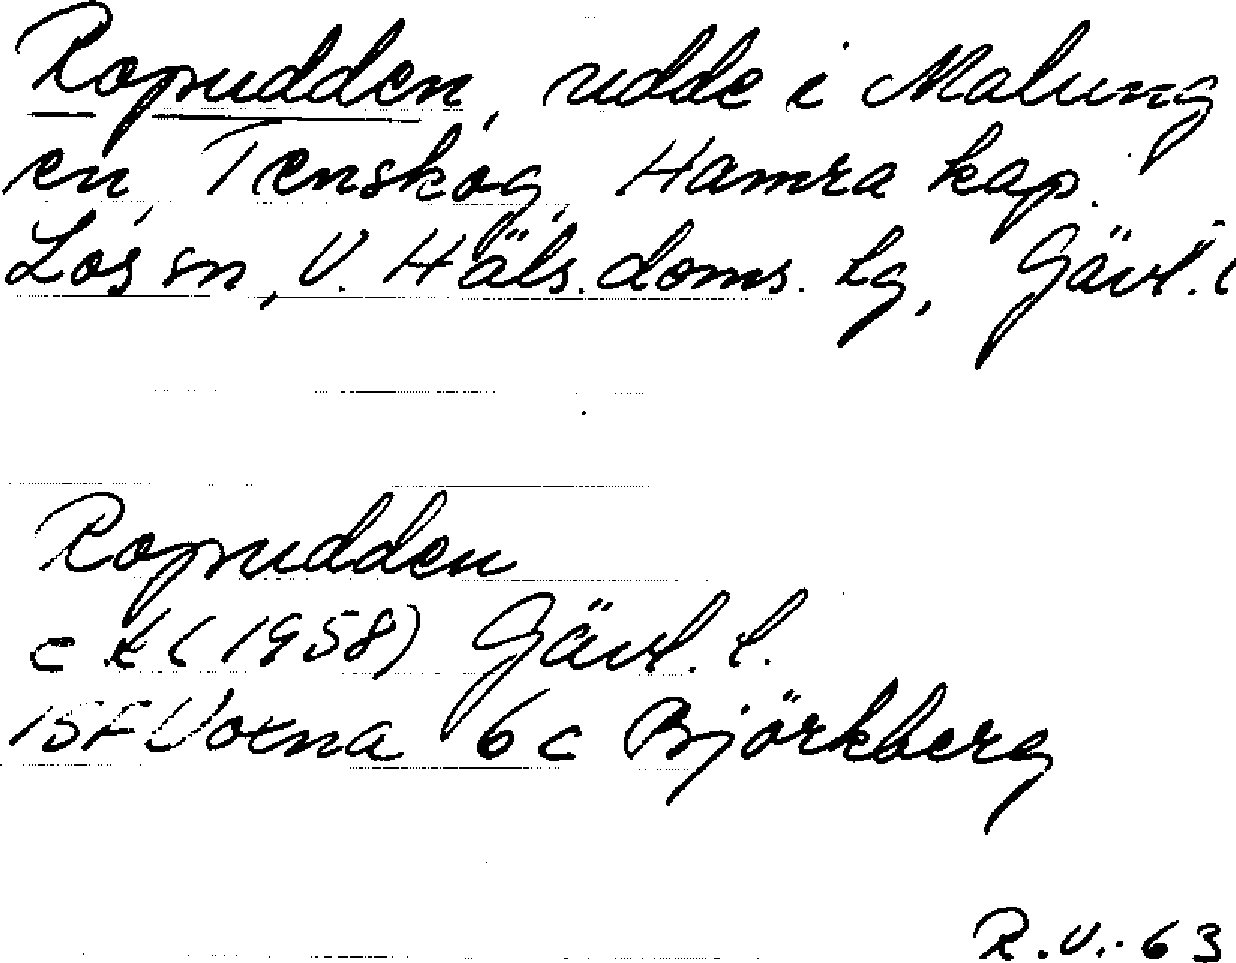 Ropudden, udde i Malung
en, Tenskog, Hamra kap.
Los sn, V. Häls. doms. lg, Gävl. l
Ropudden
c kl (1958) Gävl. l.
15F Voxna 6c Björkberg
R.V. 63